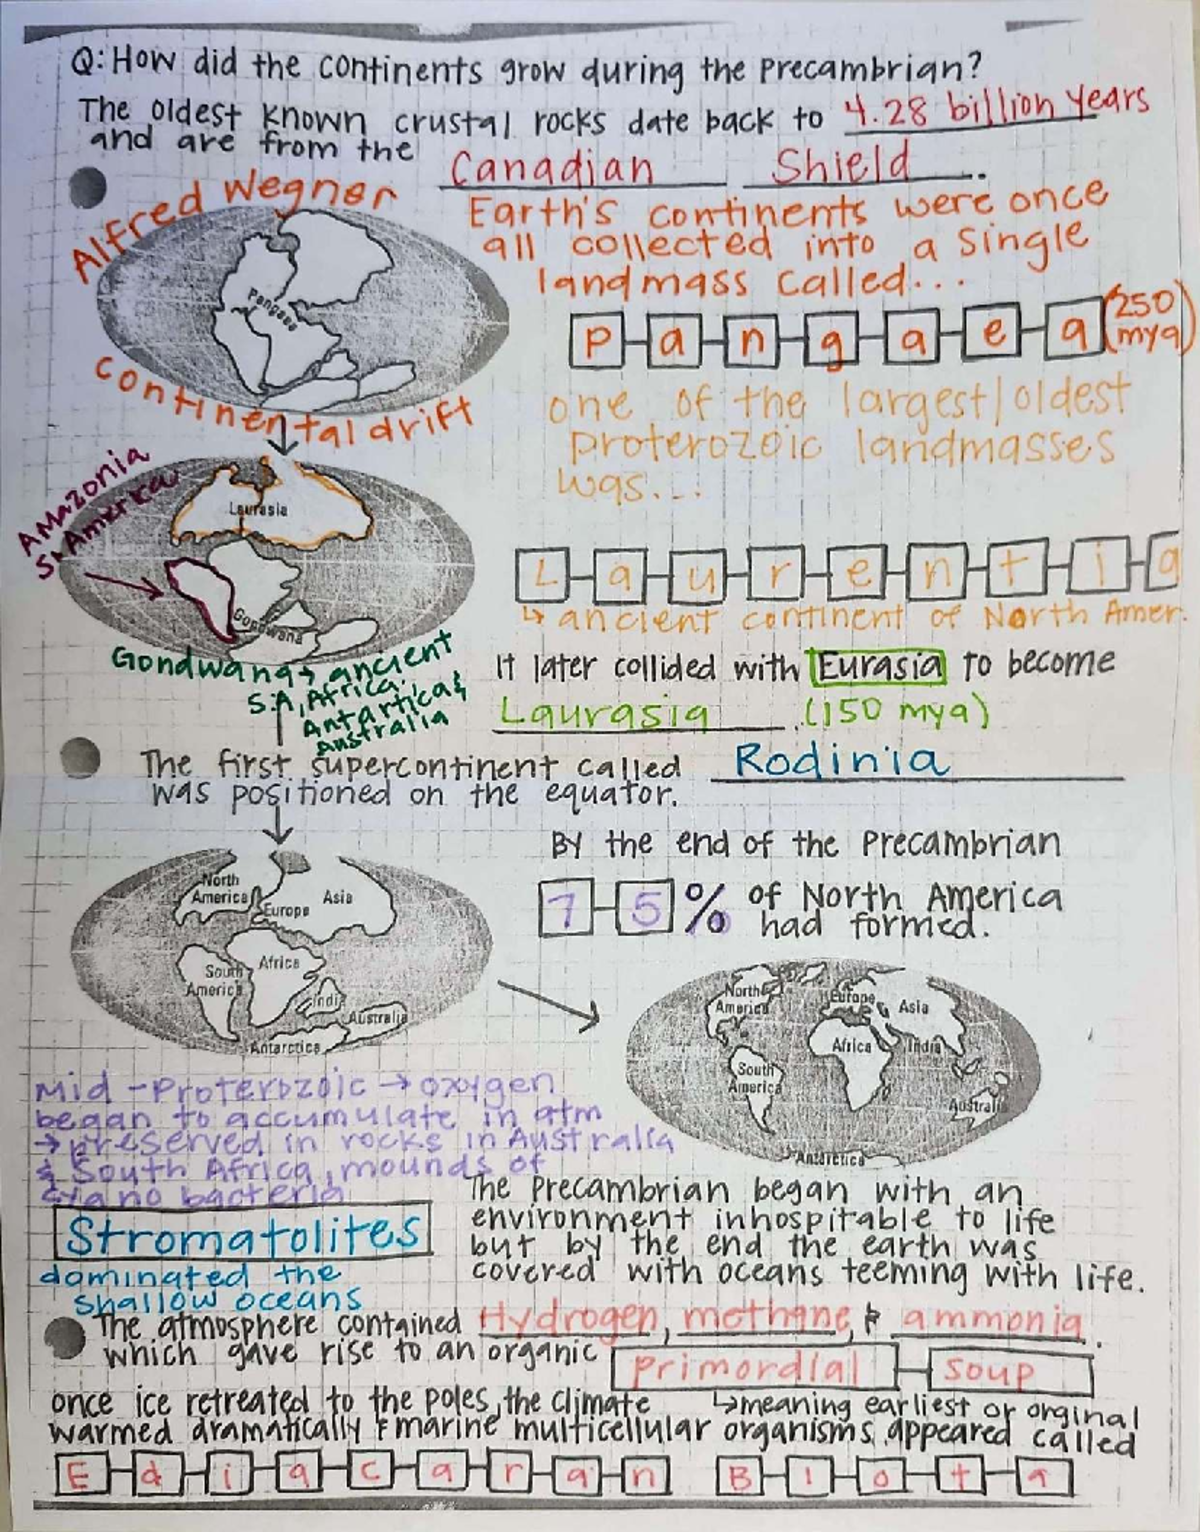 Q: How did the continents grow during the Precambrian?
The oldest known crustal rocks date back to 4.28 billion years
and are from the Canadian Shield.
Alfred Wegner
Earth's continents were once
all collected into a single
landmass called...
Pangaea
Pangaea (250
mya)
continental drift
one of the largest/oldest
Proterozoic landmasses
was...
Amazonia
S. America
Laurasia
Gondwana
Laurentia
↳ ancient continent of North Amer.
Gondwana → ancient
S.A, Africa,
Antartica &
Australia
It later collided with Eurasia to become
Laurasia (150 mya)
The first supercontinent called Rodinia
was positioned on the equator.
By the end of the Precambrian
75% of North America
had formed.
North
America
Europe
Asia
South
America
Africa
India
Australia
Antarctica
North
America
Europe
Asia
Africa
India
South
America
Australi
Antarctica
Mid-Proterozoic → oxygen
began to accumulate in atm
→ preserved in rocks in Australia
& South Africa, mounds of
cyano bacteria
Stromatolites
dominated the
shallow oceans
The Precambrian began with an
environment inhospitable to life
but by the end the earth was
covered with oceans teeming with life.
The atmosphere contained Hydrogen, methane, & ammonia.
which gave rise to an organic primordial soup
↳ meaning earliest or orginal
once ice retreated to the poles, the climate
warmed dramatically & marine multicellular organisms appeared called
Ediacaran Biota